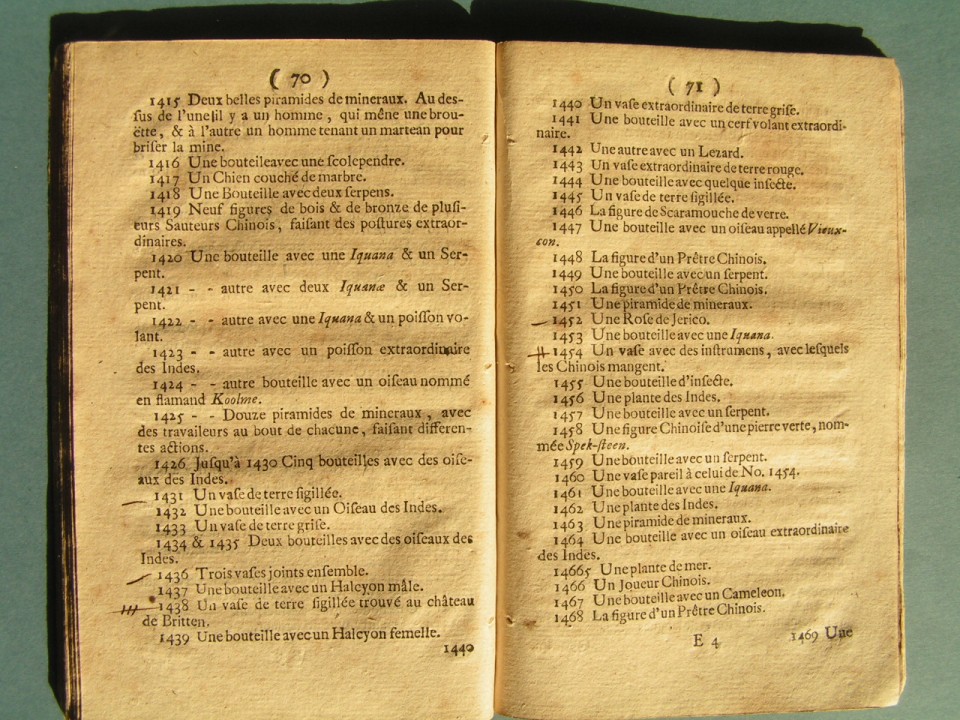 ( 70 )
1415 Deux belles piramides de mineraux. Au des-
ſus de l'unelil y a un homme, qui mêne une brou-
ëtte, & à l'autre un homme tenant un marteau pour
briſer la mine.
1416 Une bouteileavec une ſcolependre.
1417 Un Chien couché de marbre.
1418 Une Bouteille avec deux ſerpens.
1419 Neuf figures de bois & de bronze de pluſi-
eurs Sauteurs Chinois, faiſant des poſtures extraor-
dinaires.
1420 Une bouteille avec une Iquana & un Ser-
pent.
1421 - - autre avec deux Iquanæ & un Ser-
pent.
1422 - - autre avec une Iquana & un poiſſon vo-
lant.
1423 - - autre avec un poiſſon extraordinaire
des Indes.
1424 - - autre bouteille avec un oiſeau nommé
en flamand Koolme.
1425 - - Douze piramides de mineraux, avec
des travaileurs au bout de chacune, faiſant differen-
tes actions.
1426 Juſqu'à 1430 Cinq bouteilles avec des oiſe-
aux des Indes.
1431 Un vaſe de terre ſigillée.
1432 Une bouteille avec un Oiſeau des Indes.
1433 Un vaſe de terre griſe.
1434 & 1435 Deux bouteilles avec des oiſeaux des
Indes.
1436 Trois vaſes joints enſemble.
1437 Une bouteille avec un Halcyon mâle.
1438 Un vaſe de terre ſigillée trouvé au château
de Britten.
1439 Une bouteille avec un Halcyon femelle.
1440
( 71 )
1440 Un vaſe extraordinaire de terre griſe.
1441 Une bouteille avec un cerf volant extraordi-
naire.
1442 Une autre avec un Lezard.
1443 Un vaſe extraordinaire de terre rouge.
1444 Une bouteille avec quelque inſecte.
1445 Un vaſe de terre ſigillée.
1446 La figure de Scaramouche de verre.
1447 Une bouteille avec un oiſeau appellé Vieux-
con.
1448 La figure d'un Prêtre Chinois.
1449 Une bouteille avec un ſerpent.
1450 La figure d'un Prêtre Chinois.
1451 Une piramide de mineraux.
1452 Une Roſe de Jerico.
1453 Une bouteille avec une Iquana.
1454 Un vaſe avec des inſtrumens, avec leſquels
les Chinois mangent.
1455 Une bouteille d'inſecte.
1456 Une plante des Indes.
1457 Une bouteille avec un ſerpent.
1458 Une figure Chinoiſe d'une pierre verte, nom-
mée Spek-ſteen.
1459 Une bouteille avec un ſerpent.
1460 Une vaſe pareil à celui de No. 1454.
1461 Une bouteille avec une Iquana.
1462 Une plante des Indes.
1463 Une piramide de mineraux.
1464 Une bouteille avec un oiſeau extraordinaire
des Indes.
14665 Une plante de mer.
1466 Un Joueur Chinois.
1467 Une bouteille avec un Cameleon.
1468 La figure d'un Prêtre Chinois.
E 4
1469 Une